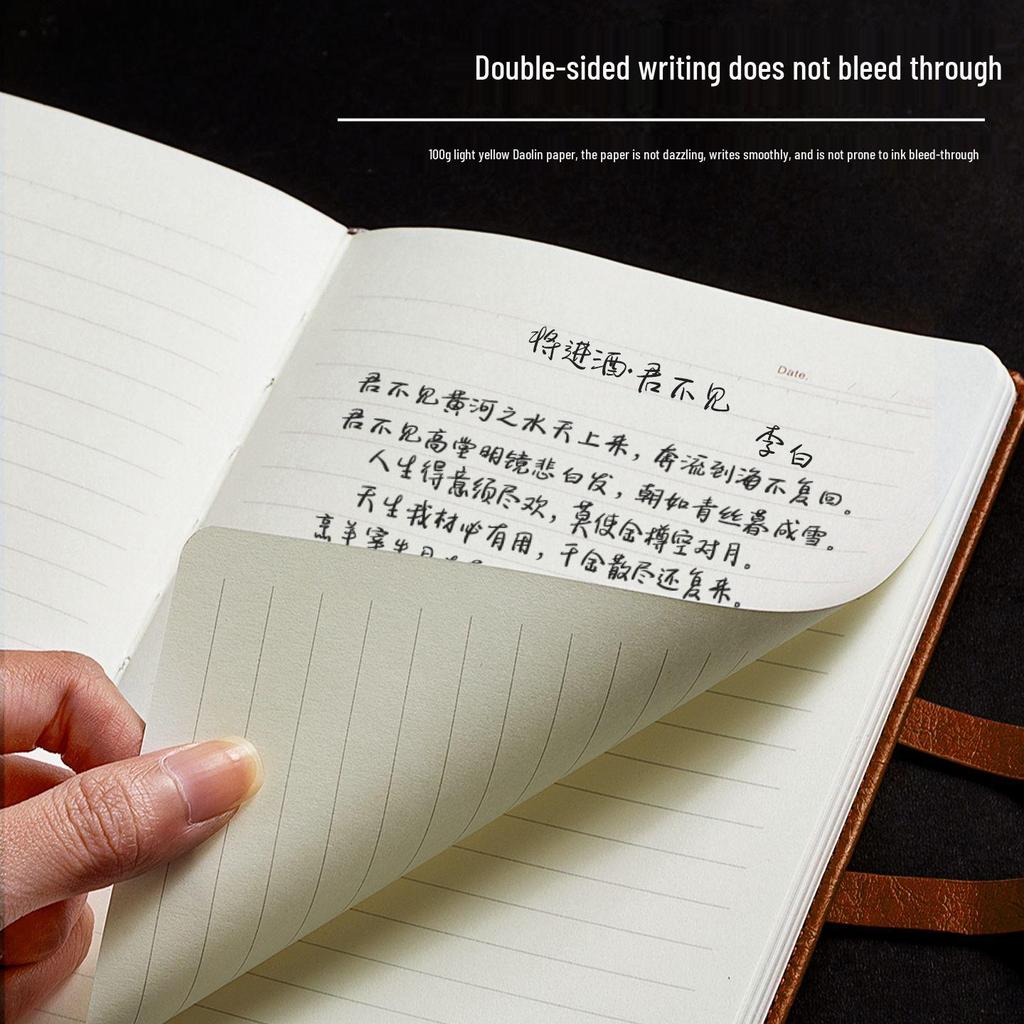 Double-sided writing does not bleed through
100g light yellow Daolin paper, the paper is not dazzling, writes smoothly, and is not prone to ink bleed-through
Date.
将进酒·君不见
李白
君不见黄河之水天上来，奔流到海不复回。
君不见高堂明镜悲白发，朝如青丝暮成雪。
人生得意须尽欢，莫使金樽空对月。
天生我材必有用，千金散尽还复来。
烹羊宰牛且